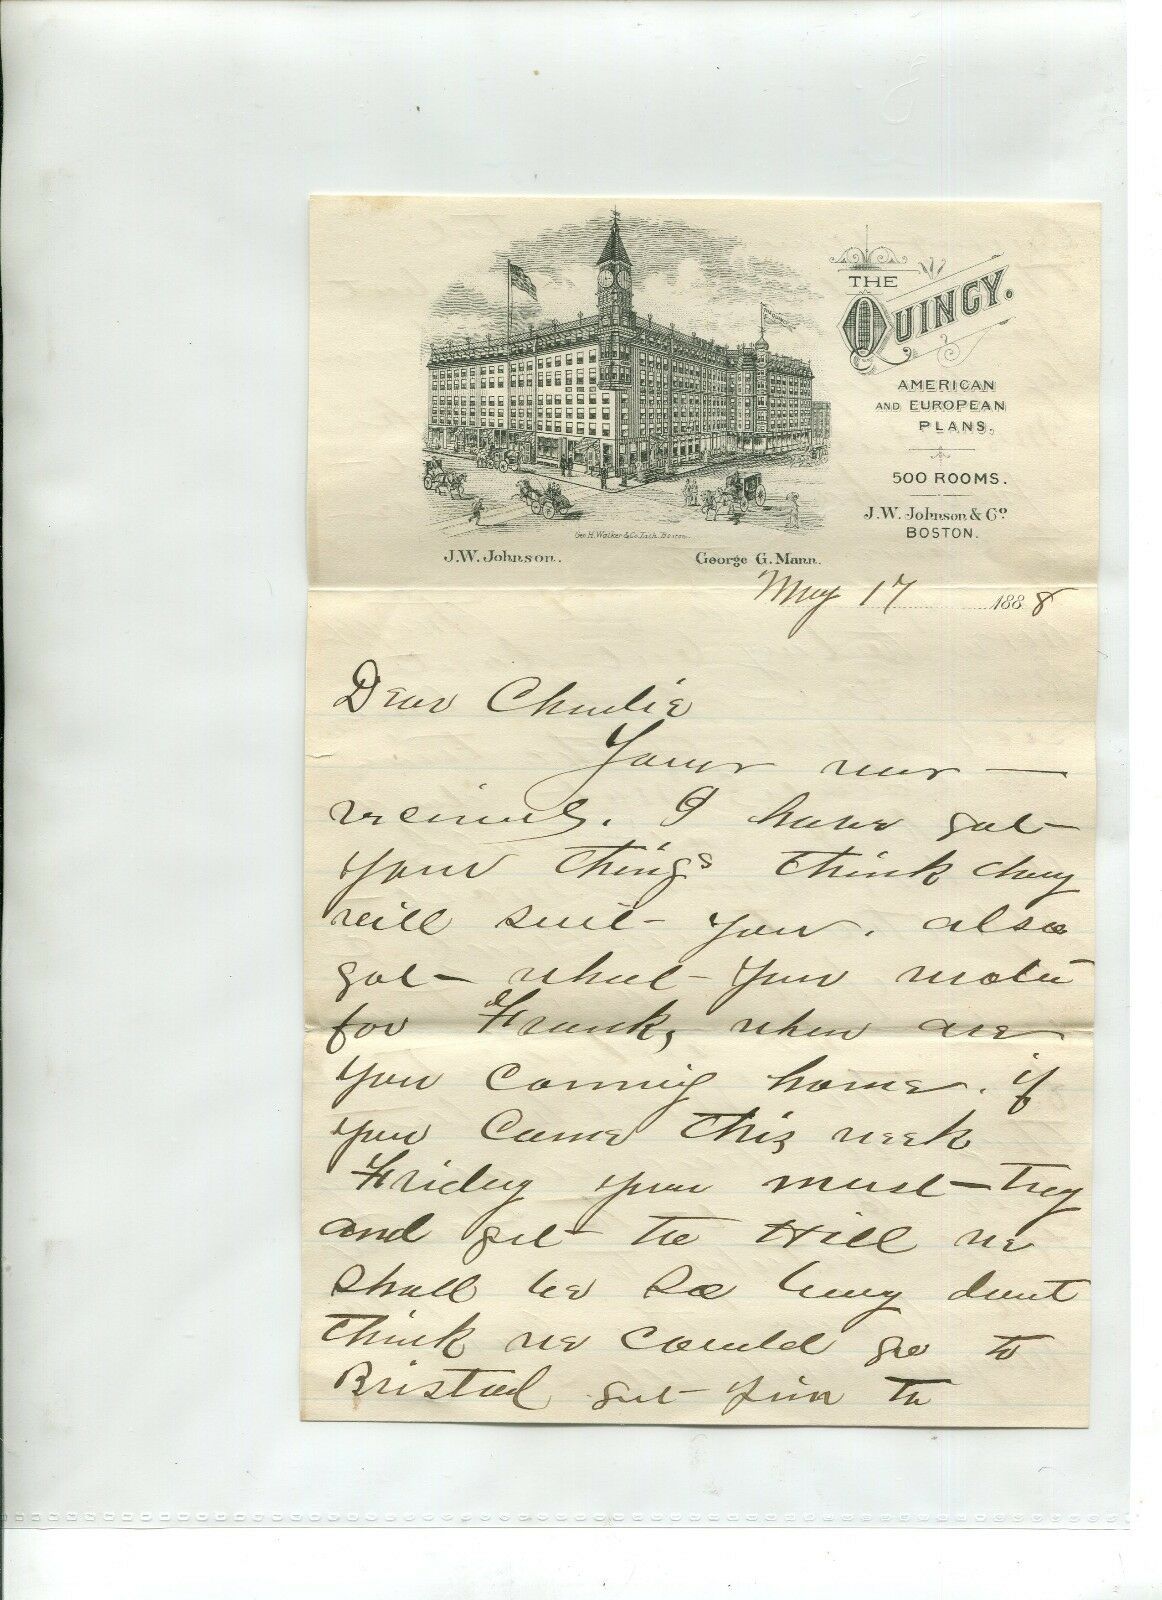 THE
QUINCY.
AMERICAN
AND EUROPEAN
PLANS.
500 ROOMS.
J.W. Johnson & Co
BOSTON.
Geo. H. Walker & Co. Lith. Boston.
J.W. Johnson. George G. Mann.
May 17 1888
Dear Charlie
Yours was
received. I have got
your things think they
will suit you. also
got what you
for Frank, when are
you coming home. if
you come this week
Friday you must try
and get to the Hill we
shall be so busy dont
think we could go to
Bristol get to